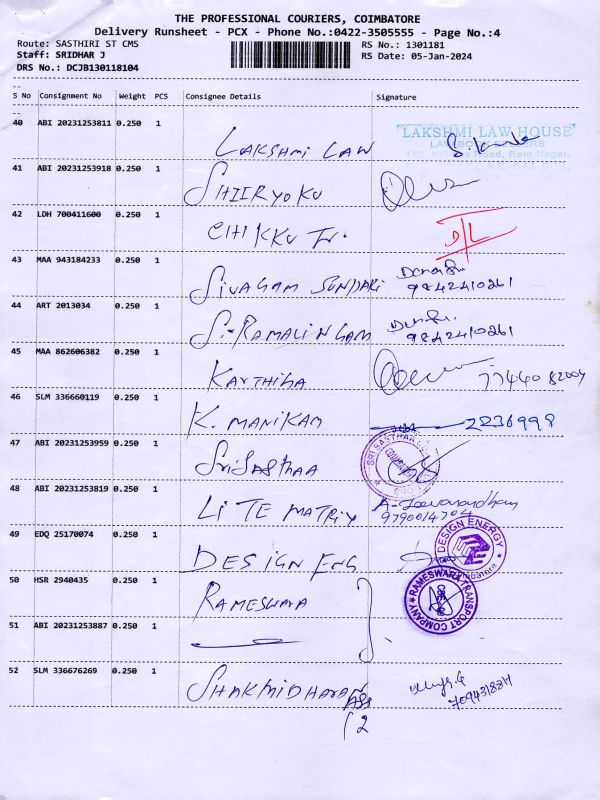 THE PROFESSIONAL COURIERS, COIMBATORE
Delivery Runsheet - PCX - Phone No.:0422-3505555 - Page No.:4
Route: SASTHIRI ST CMS RS No.: 1301181
Staff: SRIDHAR J RS Date: 05-Jan-2024
DRS No.: DCJB130118104
S No Consignment No Weight PCS Consignee Details Signature
40 ABI 20231253811 0.250 1 LAKSHMI LAW LAKSHMI LAW HOUSE
41 ABI 20231253918 0.250 1 SHIIRYOKU
42 LDH 700411600 0.250 1 CHIKKU Tr. D/L
43 MAA 943184233 0.250 1 SIVAGAM SUNDARI 9842410261
44 ART 2013034 0.250 1 S:-RAMALINGAM 9842410261
45 MAA 862606382 0.250 1 KARTHIGA
46 SLM 336660119 0.250 1 K. MANIKAM 2236998
47 ABI 20231253959 0.250 1 SRISASTHAA SRI SASTHAA
48 ABI 20231253819 0.250 1 LITE MATRIX A-Jeevanandham
9790014704
49 EDQ 25170074 0.250 1 DESIGN ENG DESIGN ENERGY
50 HSR 2940435 0.250 1 RAMESWARA RAMESWARA TRANSPORT COMPANY
51 ABI 20231253887 0.250 1
52 SLM 336676269 0.250 1